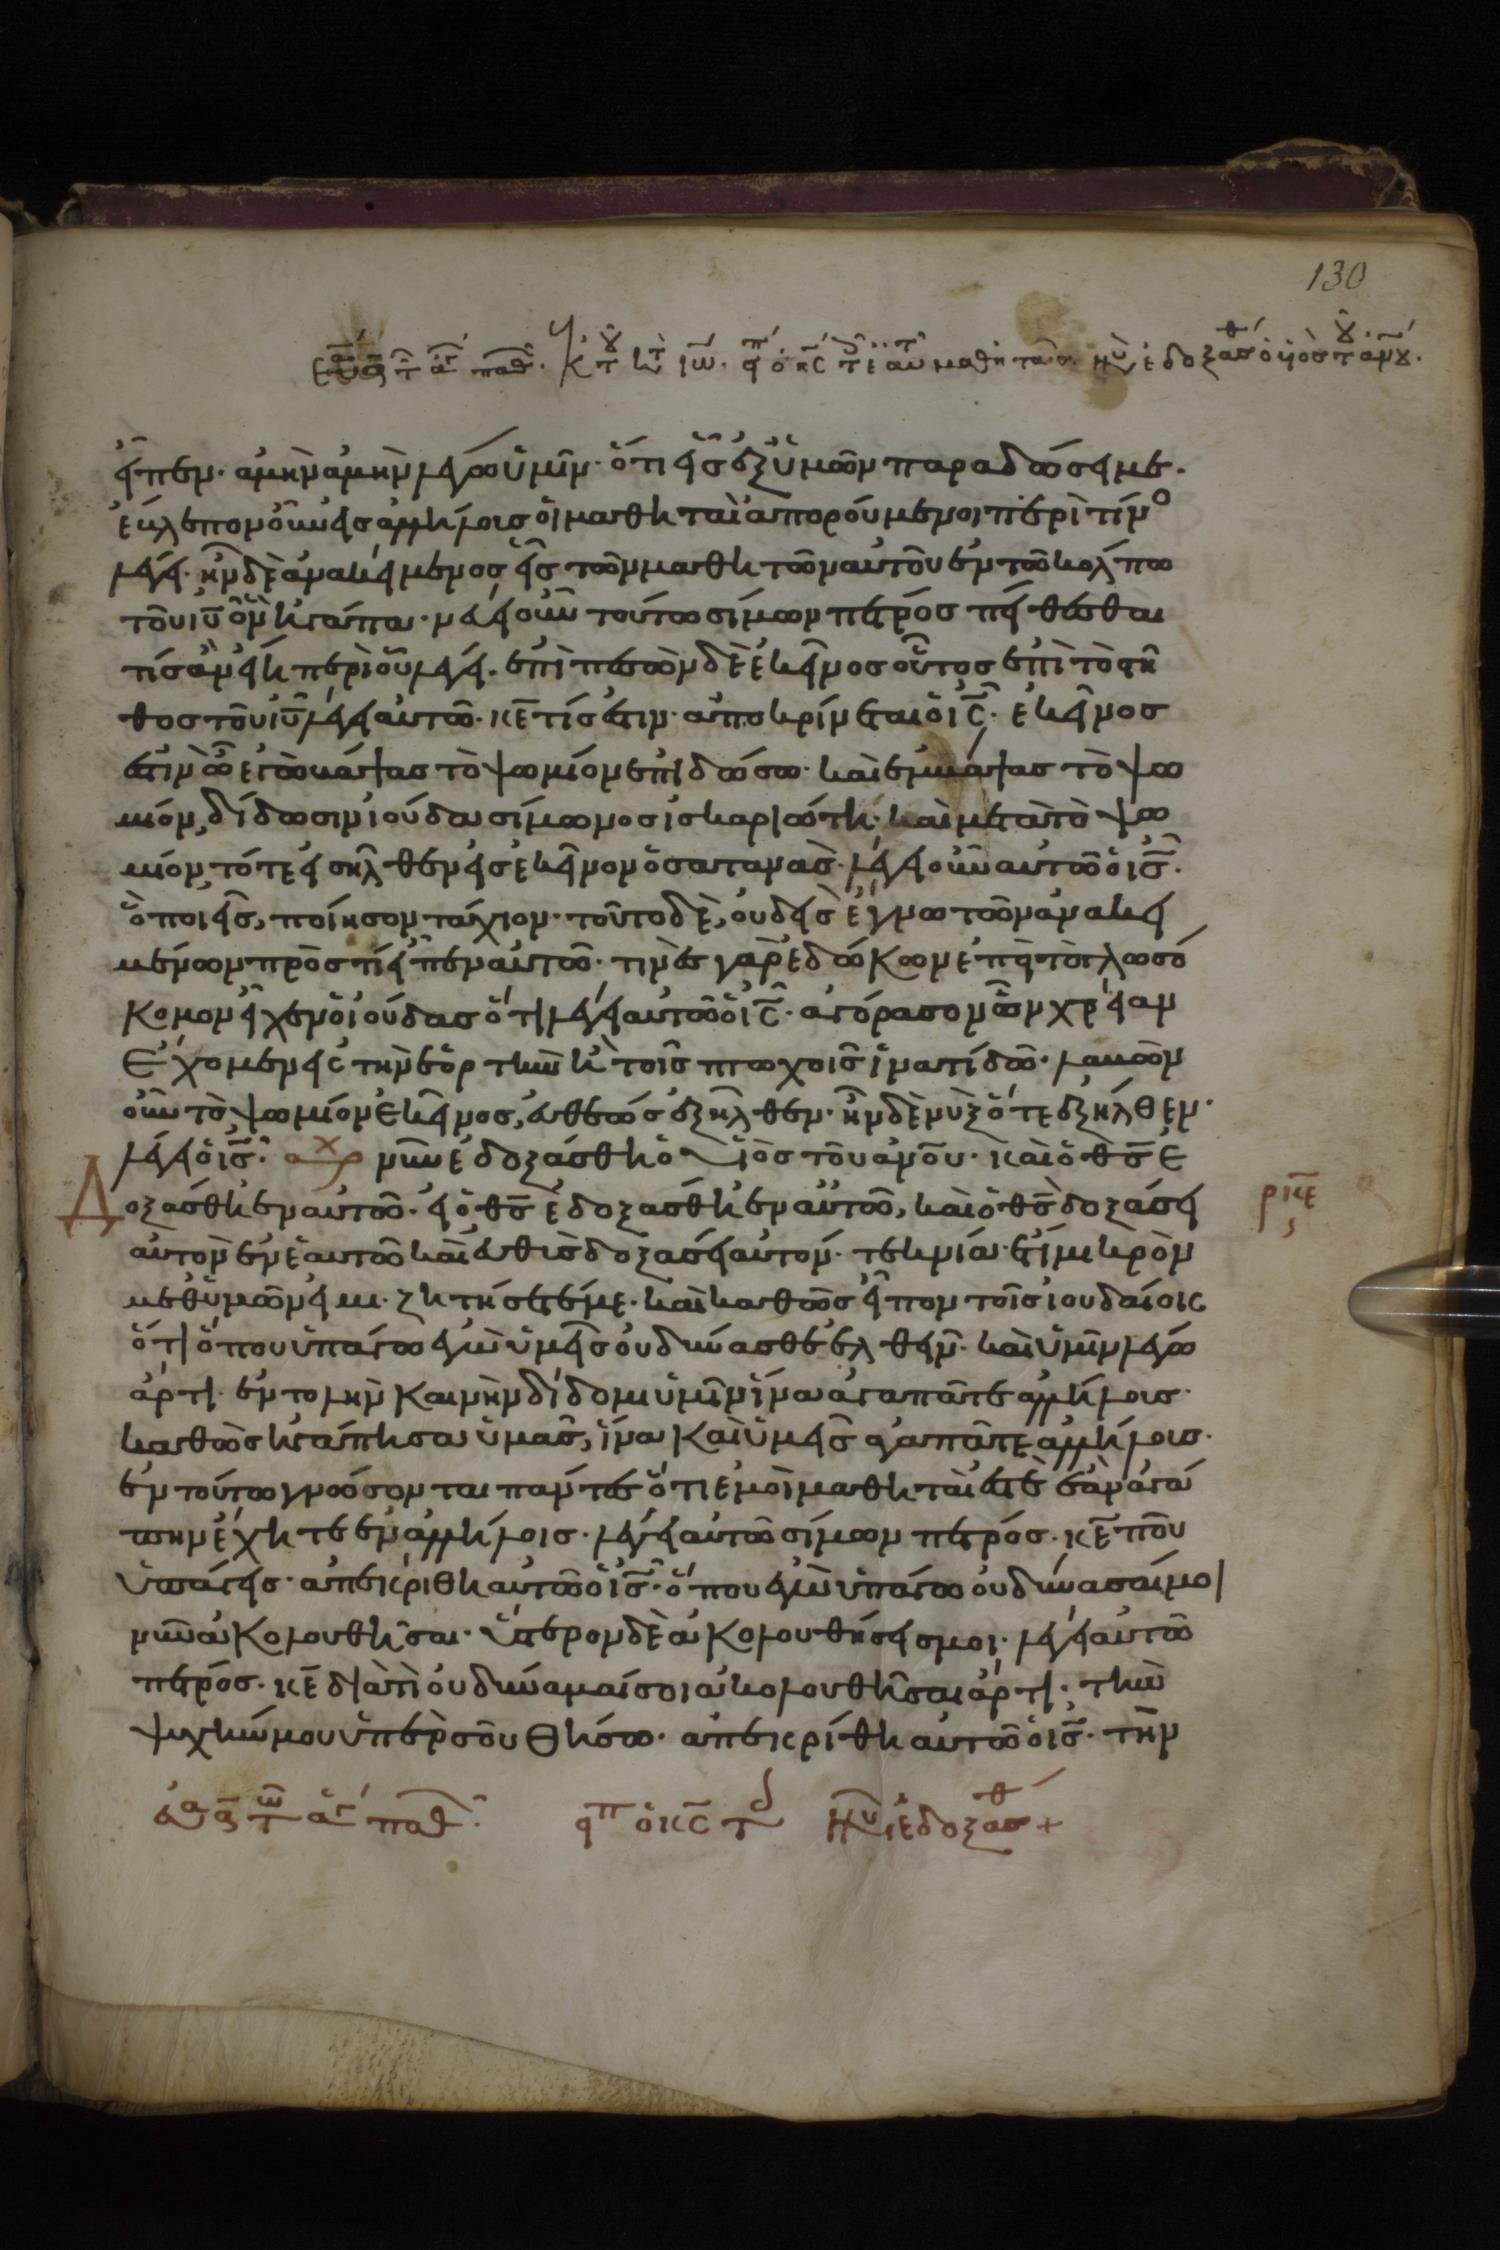 130
Εὐα α τ ἁγ παθ. ἐκ τοῦ κτ Ἰω. εἶπ ὁ κς τ ἑαυ μαθηταῖσ· νῦ ἐδοξάσθ ὁ υἱὸσ τ ἀνου.
εἶπεν· ἀμὴν ἀμὴν λέγω ὑμῖν· ὅτι εἷσ ἐξ ὑμῶν παραδώσει με.
ἔβλεπον οὖν εἰσ ἀλλήλουσ οἱ μαθηταὶ ἀπορούμενοι περὶ τίνο
λέγει. ἦν δὲ ἀνακείμενοσ εἷσ τῶν μαθητῶν αὐτοῦ ἐν τῶ κόλπω
τοῦ ιυ ὃν ἠγάπα· νεύει οὖν τούτω σίμων πέτροσ πυθέσθαι
τίσ ἂν εἴη περὶ οὗ λέγει. ἐπιπεσὼν δὲ ἐκεῖνοσ οὕτοσ ἐπὶ τὸ στῆ
θοσ τοῦ ιυ λέγει αὐτῶ. κε τίσ ἐστιν· ἀποκρίνεται ὁ ις. ἐκεῖνοσ
ἐστιν ὧ ἐγὼ βάψασ τὸ ψωμίον ἐπιδώσω. καὶ ἐμβάψασ τὸ ψω
μίον, δίδωσιν ἰούδα σίμωνοσ ἰσκαριώτη· καὶ μετὰ τὸ ψω
μίον, τότε εἰσῆλθεν εἰσ ἐκεῖνον ὁ σατανασ. λέγει οὖν αὐτῶ ὁ ισ.
ὃ ποιεῖσ, ποίησον τάχιον· τοῦτο δὲ, οὐδεὶσ ἔγνω τῶν ἀνακει
μένων πρὸσ τί εἶπεν αὐτῶ. τινὲσ γὰρ ἐδόκουν ἐπεὶ τὸ γλωσσό
κομον εἶχεν ὁ ἰούδασ ὅτι λέγει αὐτῶ ὁ ις. ἀγόρασον ὧν χρείαν
ἔχομεν εἰς τὴν ἑορτὴν ἢ τοῖσ πτωχοῖσ ἵνα τί δῶ. λαβὼν
οὖν τὸ ψωμίον ἐκεῖνοσ, εὐθέωσ ἐξῆλθεν. ἦν δὲ νὺξ ὅτε ἐξῆλθεν.
λέγει ὁ ισ. αρχ νῦν ἐδοξάσθη ὁ υἱὸσ τοῦ ἀνου. καὶ ὁ θσ ἐ
Δοξάσθη ἐν αὐτῶ. εἰ ὁ θσ ἐδοξάσθη ἐν αὐτῶ, καὶ ὁ θσ δοξάσει ρκε ς
αὐτὸν ἐν ἑαυτῶ καὶ εὐθὺσ δοξάσει αὐτόν. τεκνία· ἔτι μικρὸν
μεθ ὑμῶν εἰμι. ζητήσετέ με. καὶ καθὼσ εἶπον τοῖσ ἰουδαίοις
ὅτι ὅπου ὑπάγω ἐγὼ ὑμεῖσ οὐ δύνασθε ἐλθεῖν. καὶ ὑμῖν λέγω
ἄρτι. ἐντολὴν καινὴν δίδωμι ὑμῖν ἵνα ἀγαπᾶτε ἀλλήλουσ.
καθὼσ ἠγάπησα ὑμᾶσ, ἵνα καὶ ὑμεῖσ ἀγαπᾶτε ἀλλήλουσ.
ἐν τούτω γνώσονται πάντεσ ὅτι ἐμοὶ μαθηταὶ ἐστὲ ἐὰν ἀγά
πην ἔχητε ἐν ἀλλήλοισ. λέγει αὐτῶ σίμων πέτροσ. κε ποῦ
ὑπάγεισ. ἀπεκρίθη αὐτῶ ὁ ισ. ὅπου ἐγὼ ὑπάγω οὐ δύνασαί μοι
νῦν ἀκολουθῆσαι. ὕστερον δὲ ἀκολουθήσεισ μοι. λέγει αὐτῶ
πέτροσ. κε διατὶ οὐ δύναμαί σοι ἀκολουθῆσαι ἄρτι. τὴν
ψυχήν μου ὑπὲρ σοῦ θήσω. ἀπεκρίθη αὐτῶ ὁ ισ. τὴν
εὐα α τῶ ἁγ παθ. εἶπ ὁ κς τ νῦ ἐδοξάσθ +